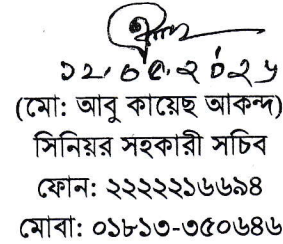 ১২.০৫.২০২৫
(মো: আবু কায়েছ আকন্দ)
সিনিয়র সহকারী সচিব
ফোন: ২২২২২১৬৬৯৪
মোবা: ০১৮১৩-৩৫০৬৪৬